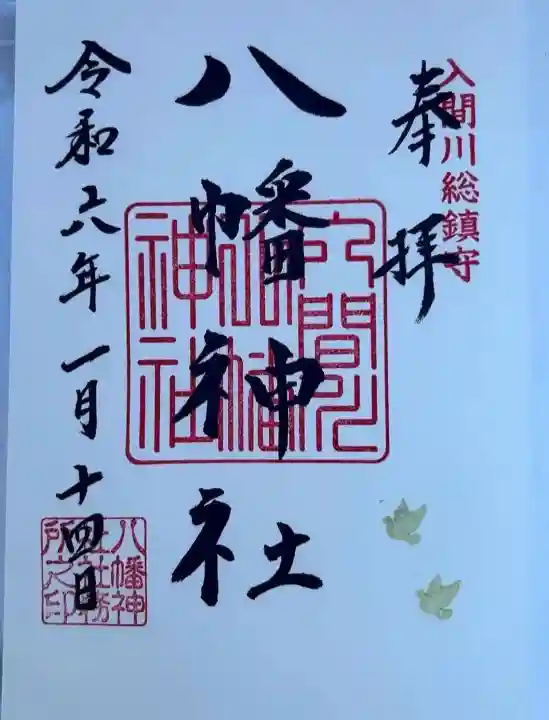 入間川総鎮守
奉拝
八幡神社
入間川
八幡
神社
令和六年一月十四日
八幡神
社社務
所之印